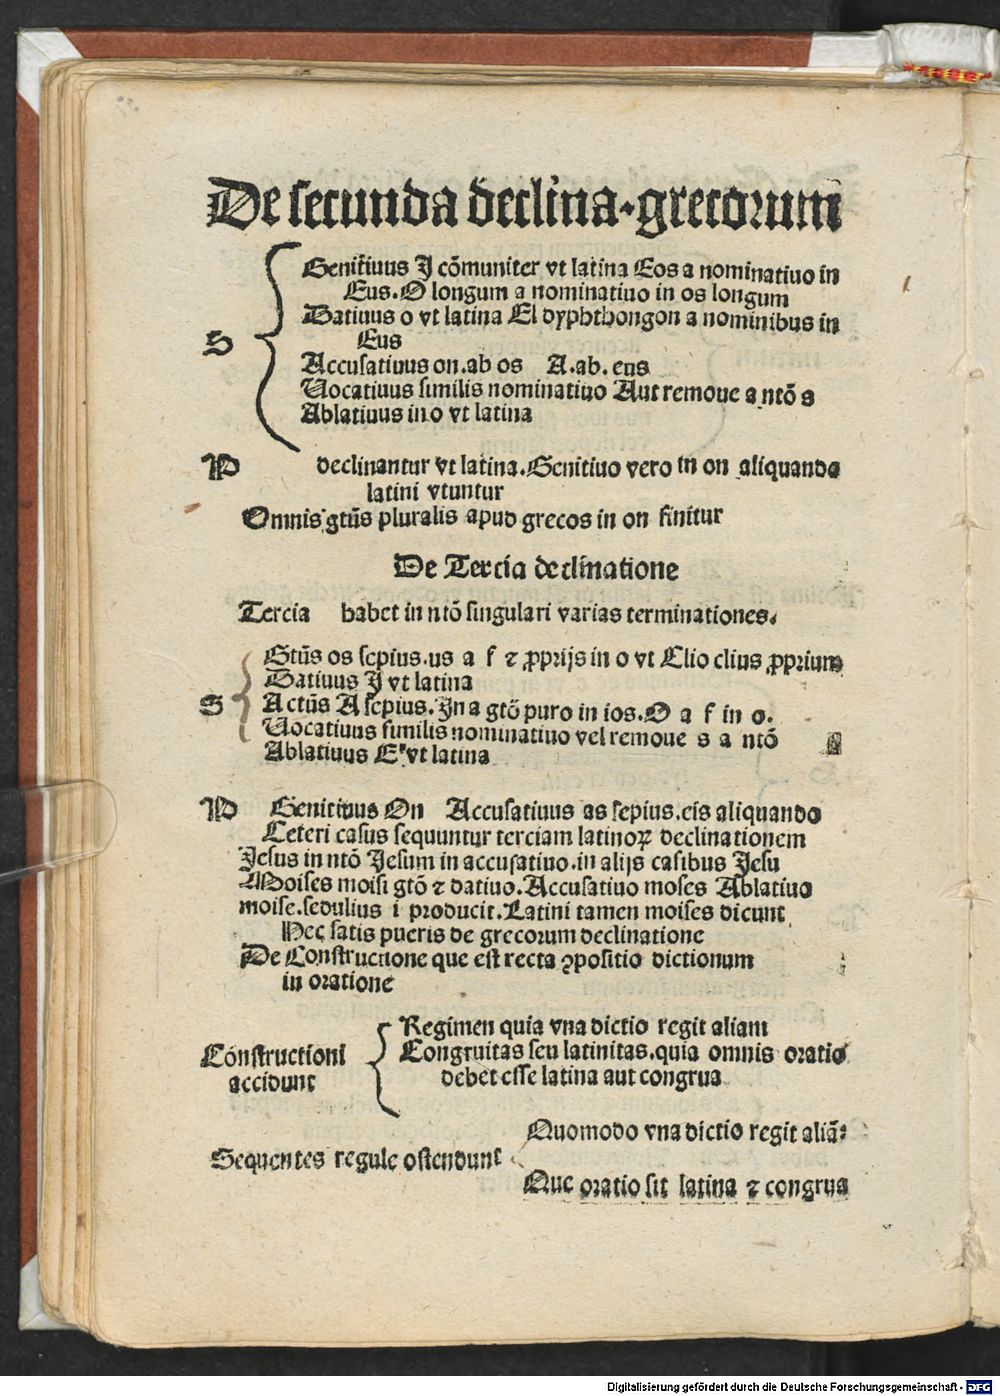 De secunda declina.grecorum
Genitiuus J cōmuniter vt latina Eos a nominatiuo in
Eus.O longum a nominatiuo in os longum
Datiuus o vt latina EI dyphthongon a nominibus in
Eus
S
Accusatiuus on.ab os A.ab.eus
Uocatiuus similis nominatiuo Aut remoue a ntō s
Ablatiuus in.o vt latina
P declinantur vt latina.Genitiuo vero in on aliquando
latini vtuntur
Omnis gtūs pluralis apud grecos in on finitur
De Tercia declinatione
Tercia habet in ntō singulari varias terminationes.
Gtūs os sepius.us a f ⁊ ꝓprijs in o vt Clio clius ꝓprium
Datiuus J vt latina
S Actūs A sepius.Jn a gtō puro in ios.O a f in o.
Uocatiuus similis nominatiuo vel remoue s a ntō
Ablatiuus E vt latina
P Genitiuus On Accusatiuus as sepius.eis aliquando
Ceteri casus sequuntur terciam latinoꝝ declinationem
Jesus in ntō Jesum in accusatiuo.in alijs casibus Jesu
Moises moisi gtō ⁊ datiuo.Accusatiuo moses Ablatiuo
moise.sedulius i producit.Latini tamen moises dicunt
Hec satis pueris de grecorum declinatione
De Constructione que est recta ꝯpositio dictionum
in oratione
Constructioni accidunt
Regimen quia vna dictio regit aliam
Congruitas seu latinitas.quia omnis oratio
debet esse latina aut congrua
Sequentes regule ostendunt
Quomodo vna dictio regit aliā:
Que oratio sit latina ⁊ congrua
Digitalisierung gefördert durch die Deutsche Forschungsgemeinschaft - DFG